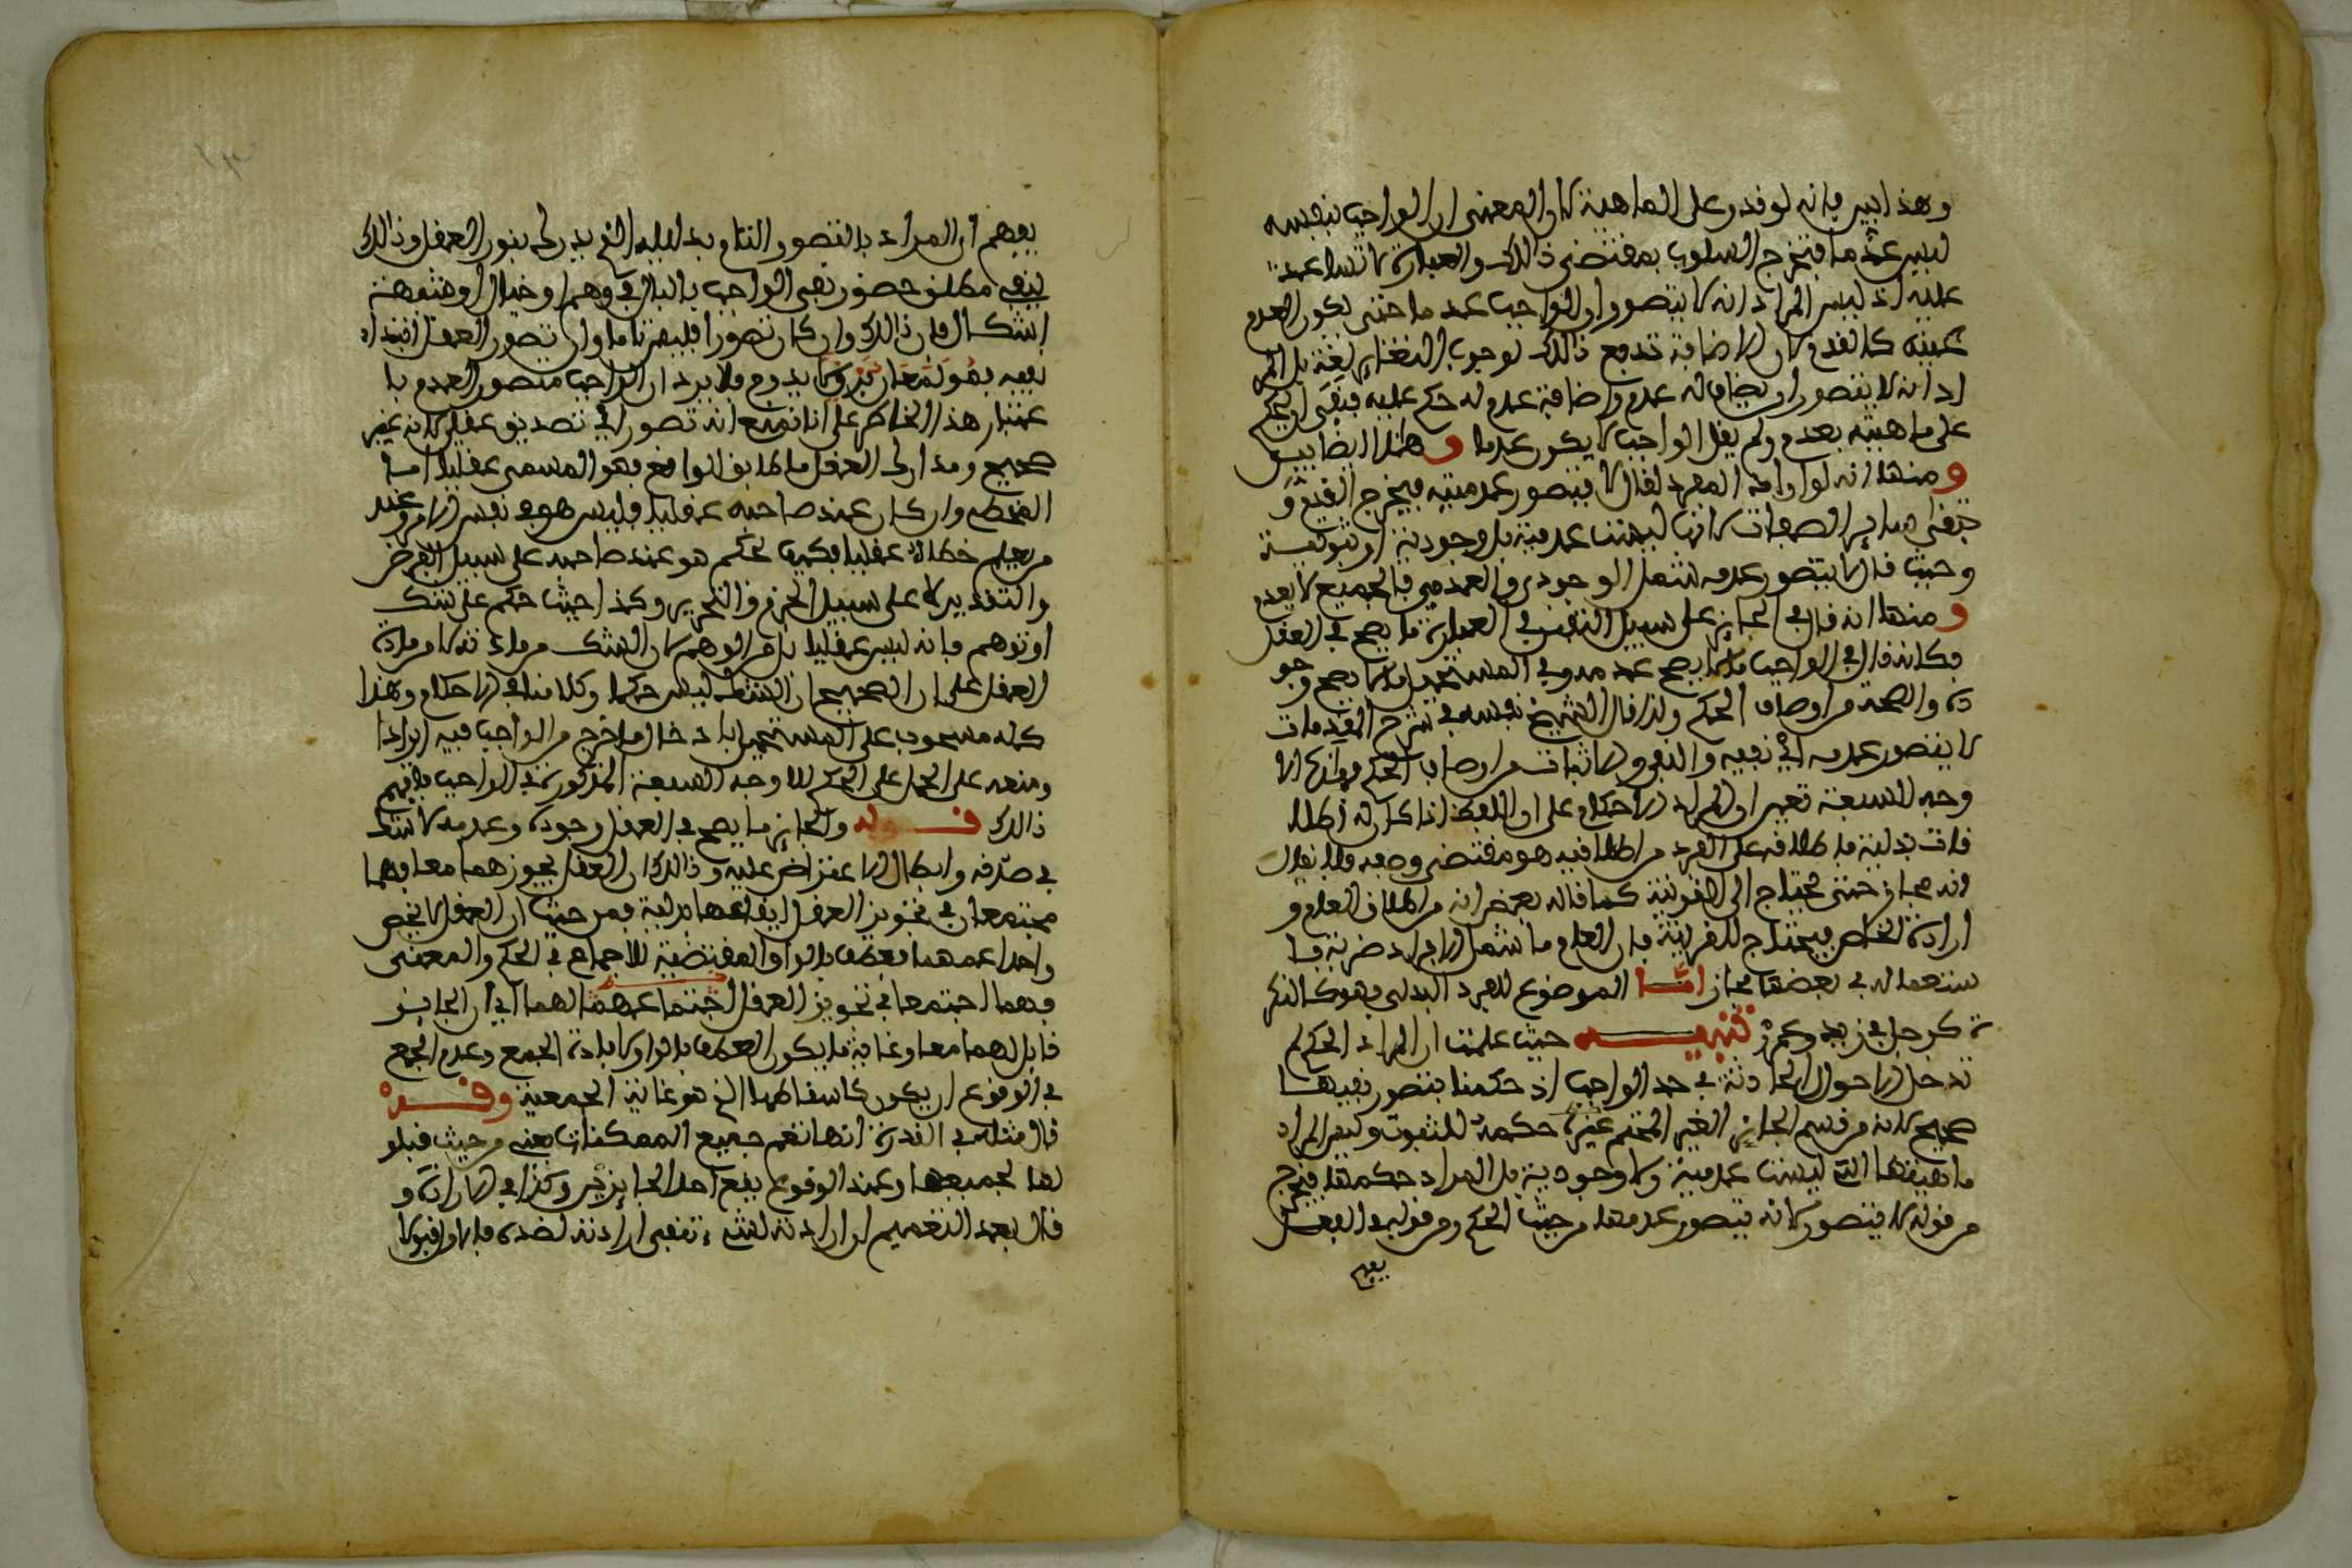 وهذا بين فإنه لو قدر على الماهية كان المعنى ان الواجب بنفسه
ليس عدما فتخرج السلوب بمقتضى ذالك والعبارة لا تساعد
عليه اذ ليس المراد انه لا يتصور ان الواجب عدما حتى يكون العدم
عينه كالقدم ولان الاضافة تدفع ذالك لوجوب التغاير لغة بل المر
اد انه لا يتصور ان يضاف له عدم واضافة عدم له حكم عليه فبقى ان يحكم
على ماهيته بعدم ولم يقل الواجب لا يكون عدما وهذا ايضا بين
ومنها انه لو اراد المفرد لقال لا يتصور عدميته فيخرج القدم و
تبقى ساير الصفات لانها ليست عدمية بل وجودية او ثبوتية
وحيث قال لا يتصور عدمه شمل الوجودي والعدمي فالجميع لا يعدم
ومنها انه قال في الجايز على سبيل التفنن في العبارة ما يصح في العقل
فكانه قال في الواجب ما لا يصح عدمه وفي المستحيل ما لا يصح وجو
ده والصحة من اوصاف الحكم ولذا قال الشيخ نفسه في شرح المقدمات
لا يتصور عدمه اي نفيه والنفي والاثبات من اوصاف الحكم
وجه للسبعة تعين ان المراد الاحكام على ان اللفظ اذا كان له اطلا
قات بدلية فاطلاقه على الفرد من اطلاقيه هو مقتضى وضعه فلا يقال
انه مجاز حتى يحتاج الى القرينة كما قاله بعض انه من اطلاق العام و
ارادة الخاص فيحتاج للقرينة فان العام ما شمل الافراد ضربة فا
ستعماله في بعضها مجاز اما الموضوع للفرد البدلي فهو كالنكر
ة كرجل في زيد وعمرو تنبيه حيث علمت ان المراد الحكم لم
تدخل الاحوال الحادثة في حد الواجب اذ حكمنا بتصور نفيها
صحيح لانه من قسم الجايز الغير المحتم غيره حكمه للثبوت وليس المراد
ماهيتها التي ليست عدمية ولا وجودية بل المراد حكمها فتخرج
من قوله لا يتصور لانه يتصور عدمها من حيث الحكم ومن قوله في العقل
يفهم
يفهم ان المراد بالتصور التام بدليله الذي يدركه بنور العقل وذالك
ينفي مطلق حضور نفي الواجب بالبال في وهم او خيال او شبهة
اشكال فان ذالك وان كان تصورا فليس تاما وان تصور العقل ابتداء
نفيه فهو لا يدوم فلا يرد ان الواجب متصور العدم با
عتبار هذا الخاطر على انا نمنع انه تصور اي تصديق عقلي لانه غير
صحيح ومدارك العقل ما طابق الواقع فهو المسمى عقليا اما
الخطا وان كان عند صاحبه عقليا فليس هو في نفس الامر وعند
من يعلم خطاه عقليا فكيف بحكم هو عند صاحبه على سبيل الفرض
والتقدير لا على سبيل الجزم والتحرير وكذا حيث حكم على شك
او توهم فانه ليس عقليا بل من الوهم لان الشك من مادته لا من مادة
العقل على ان الصحيح ان الشك ليس حكما وكلامنا في الاحكام وهذا
كله مسحوب على المستحيل بادخال ما خرج من الواجب فيه ايرادا
ومنعه على الحمل على الحكم للاوجه السبعة المذكورة في الواجب فافهم
ذالك قوله والجايز ما يصح في العقل وجوده وعدمه لا شك
في صدقه وابطال الاعتراض عليه وذالك ان العقل يجوزهما معا فهما
مجتمعان في تجويز العقل ايقاعهما بدلية فمن حيث ان العقل لا يخص
واحدا عمهما فعطف بالواو المقتضية للاجماع في الحكم والمعنى
وهما اجتمعا في تجويز العقل اجتماعهما لهما اي ان الجايز
قابل لهما معا وغاية ما يكون العطف بالواو لافادة الجمع وعدم الجمع
في الوقوع ان يكون كاسقاطهما الذي هو غاية الجمعية وقد
قال مثله في القدرة انها تعم جميع الممكنات يعني من حيث قبلو
لها بجميعها وعند الوقوع يقع احد الجايزين وكذا في الارادة و
قال بعد التعميم ان ارادته لشيء تنفي ارادته لضده فالاول قبولا